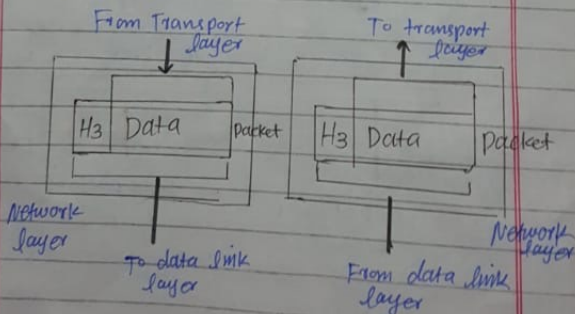 From Transport
layer
H3 Data Packet
Network
layer
To data link
layer
To transport
layer
H3 Data Packet
Network
layer
From data link
layer